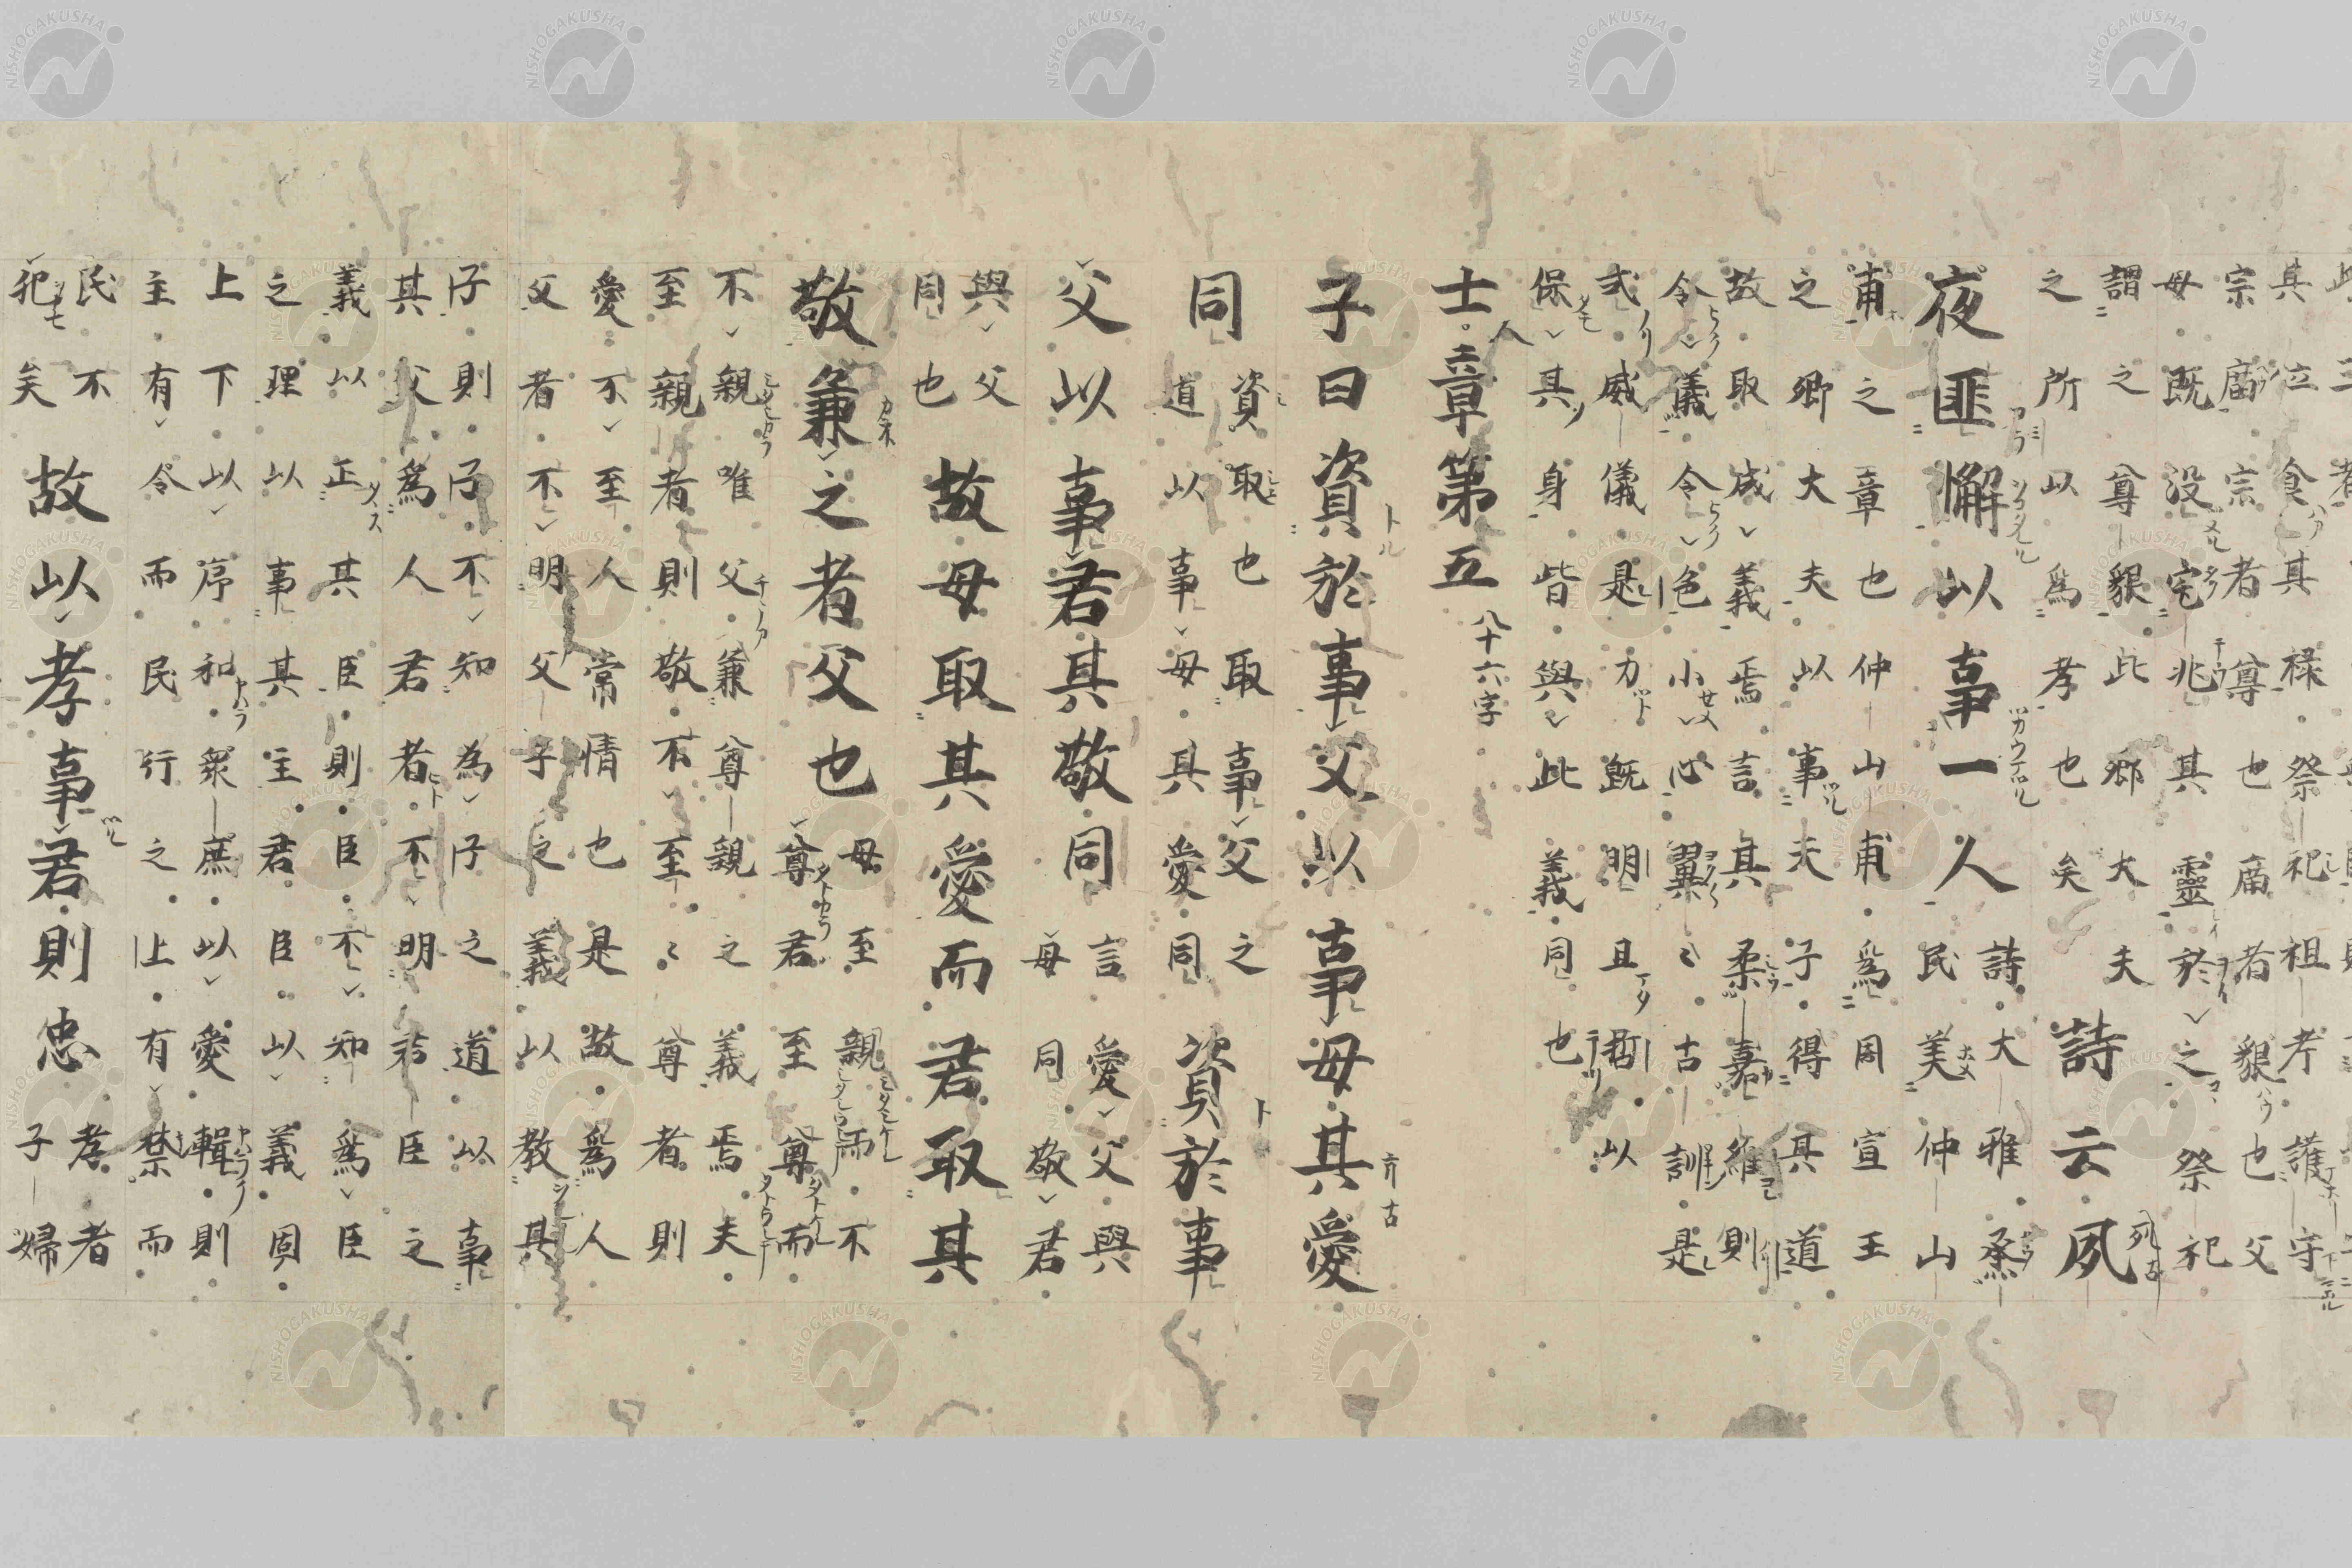 其位食其禄祭祀祖考護守
宗廟宗者尊也廟者貌也父
母既没宅兆其靈於之祭祀
謂之尊貌此卿大夫
之所以為孝也矣
詩云夙
夜匪懈以事一人
詩大雅烝
民美仲山
甫之章也仲山甫為周宣王
之卿大夫以事夫子得其道
故取成義焉言其柔嘉維則
令儀令色小心翼〻古訓是
式威儀是力既明且哲以
保其身皆與此義同也
士人章第五
八十六字
子曰資於事父以事母其愛
同
資取也取事父之
道以事母其愛同
資於事
父以事君其敬同
言愛父與
母同敬君
與父
同也
故母取其愛而君取其
敬兼之者父也
母至親而不
尊君至尊而
不親唯父兼尊親之義焉夫
至親者則敬不至〻尊者則
愛不至人常情也是故為人
父者不明父子之義以教其
子則子不知為子之道以事
其父為人君者不明君臣之
義以正其臣則臣不知為臣
之理以事其主君臣以義固
上下以序和衆庶以愛輯則
主有令而民行之上有禁而
民不
犯矣
故以孝事君則忠
孝者
子婦
NISHOGAKUSHA